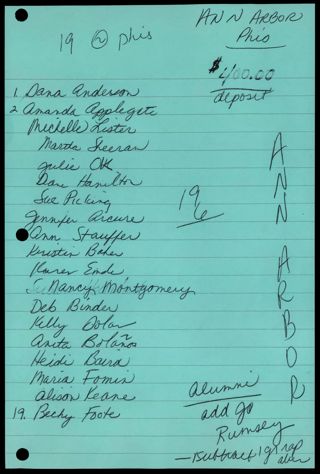 ANN ARBOR
19 @ phis
Phis
$400.00
deposit
1. Dana Anderson
2. Amanda Applegate
Michelle Lister
Martha Sheeran
Julie OK
Dane Hamilton
Sue Picking
19
Jennifer Arcure
6
Ann Stauffer
Kristin Baker
Karen Emde
Nancy Montgomery
Deb Binder
Kelly Dolan
Anita Bolaños
Heidi Baird
Maria Fomin
Alison Keane
19. Becky Foote
ANN ARBOR
alumni
add go
Rumsey
- subtract 1g